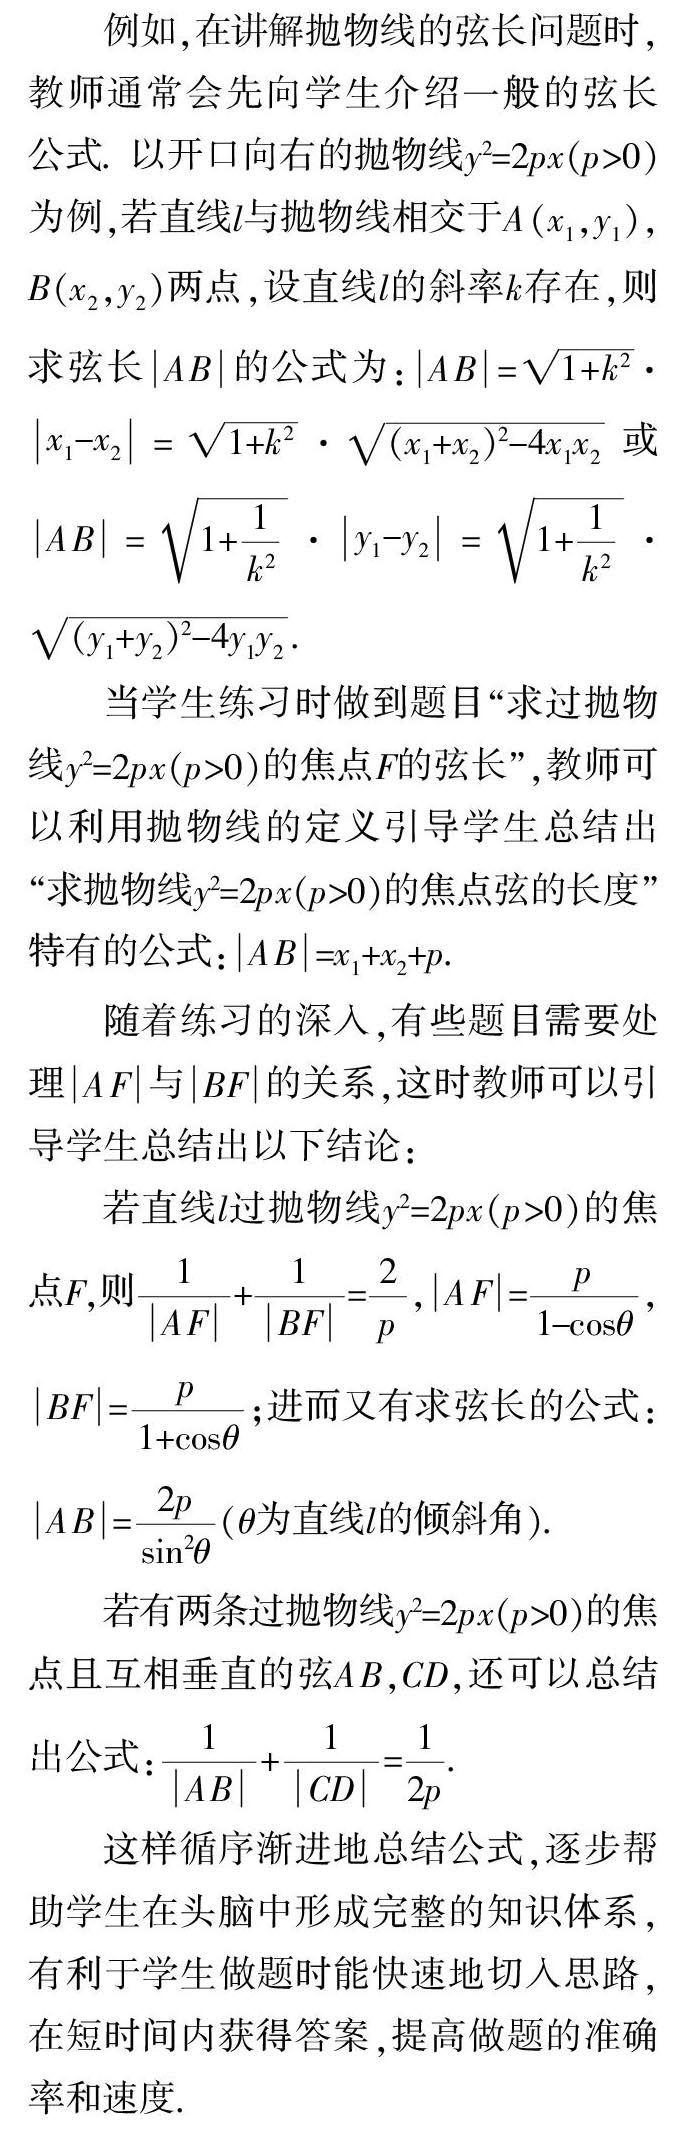 例如,在讲解抛物线的弦长问题时,
教师通常会先向学生介绍一般的弦长
公式. 以开口向右的抛物线y²=2px(p>0)
为例,若直线l与抛物线相交于A(x₁,y₁),
B(x₂,y₂)两点,设直线l的斜率k存在,则
求弦长|AB|的公式为:|AB|=√(1+k²)·
|x₁-x₂| = √(1+k²) · √((x₁+x₂)²-4x₁x₂) 或
|AB| = √(1+1/k²) · |y₁-y₂| = √(1+1/k²) ·
√((y₁+y₂)²-4y₁y₂).
当学生练习时做到题目“求过抛物
线y²=2px(p>0)的焦点F的弦长”,教师可
以利用抛物线的定义引导学生总结出
“求抛物线y²=2px(p>0)的焦点弦的长度”
特有的公式:|AB|=x₁+x₂+p.
随着练习的深入,有些题目需要处
理|AF|与|BF|的关系,这时教师可以引
导学生总结出以下结论:
若直线l过抛物线y²=2px(p>0)的焦
点F,则1/|AF|+1/|BF|=2/p,|AF|=p/(1-cosθ),
|BF|=p/(1+cosθ);进而又有求弦长的公式:
|AB|=2p/sin²θ(θ为直线l的倾斜角).
若有两条过抛物线y²=2px(p>0)的焦
点且互相垂直的弦AB,CD,还可以总结
出公式:1/|AB|+1/|CD|=1/2p.
这样循序渐进地总结公式,逐步帮
助学生在头脑中形成完整的知识体系,
有利于学生做题时能快速地切入思路,
在短时间内获得答案,提高做题的准确
率和速度.